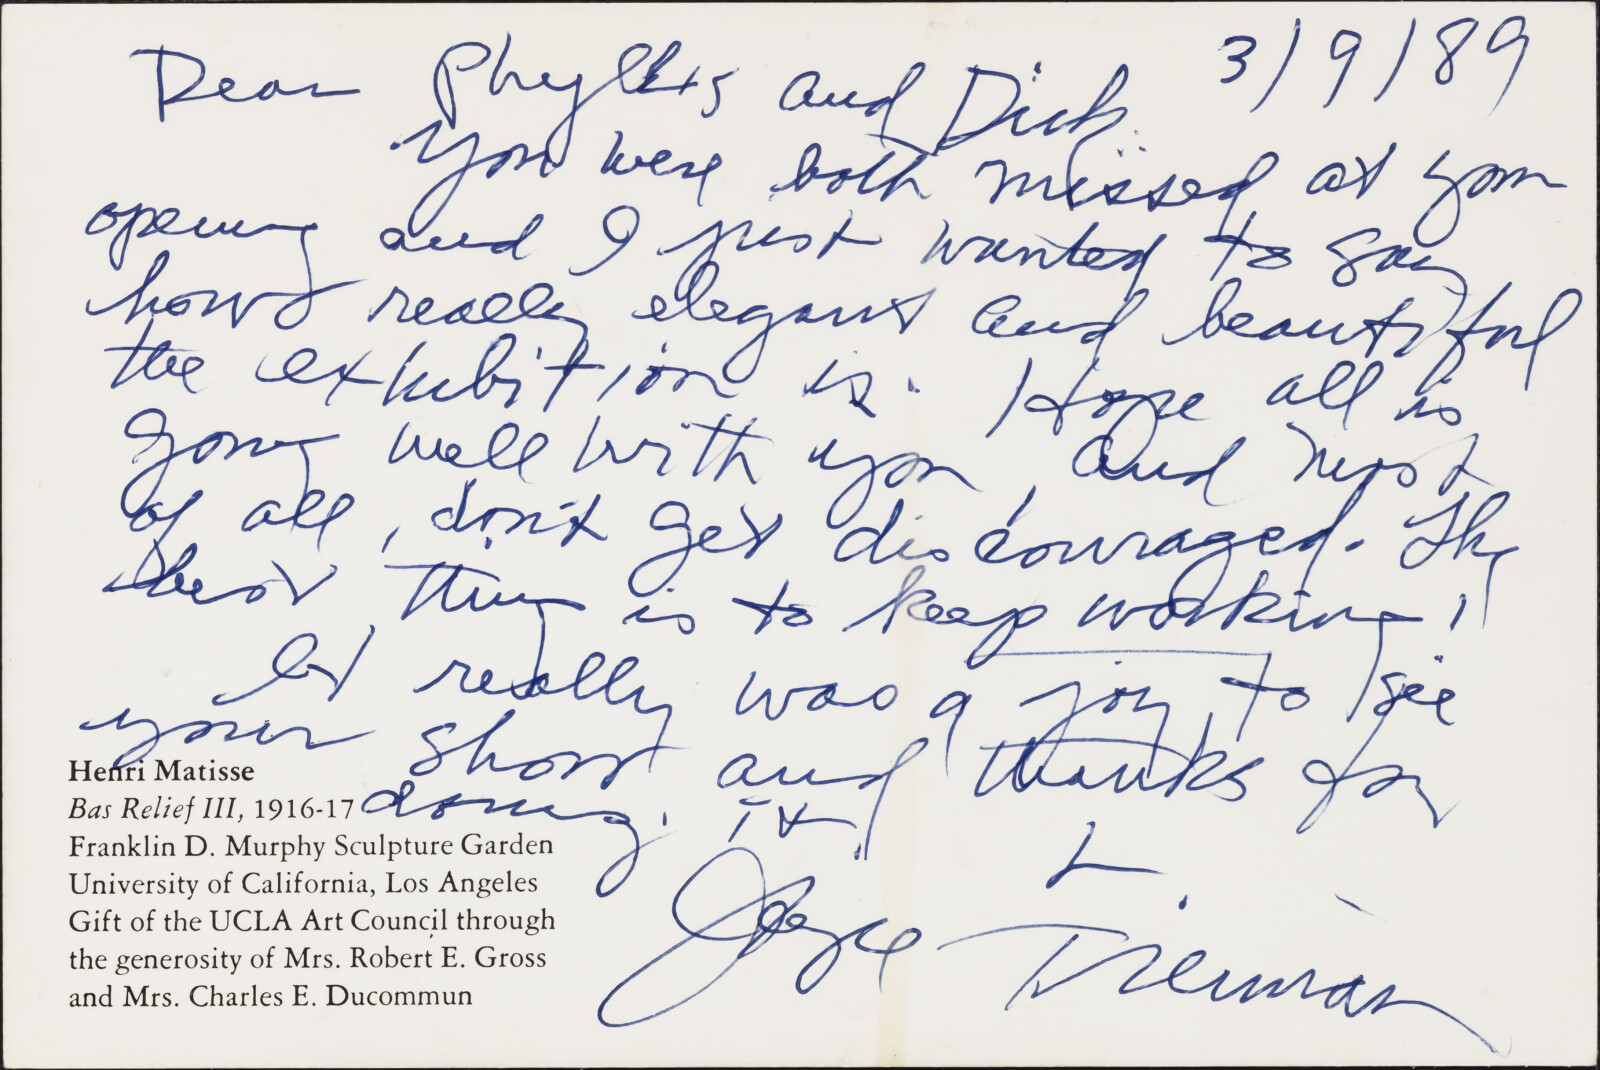 3/9/89
Dear Phyllis and Dick
You were both missed at your
opening and I just wanted to say
how really elegant and beautiful
the exhibition is. Hope all is
going well with you, and most
of all, don't get discouraged. The
best thing is to keep working!
It really was a joy to see
your show and thanks for
doing it!
Joyce Treiman
Henri Matisse
Bas Relief III, 1916-17
Franklin D. Murphy Sculpture Garden
University of California, Los Angeles
Gift of the UCLA Art Council through
the generosity of Mrs. Robert E. Gross
and Mrs. Charles E. Ducommun